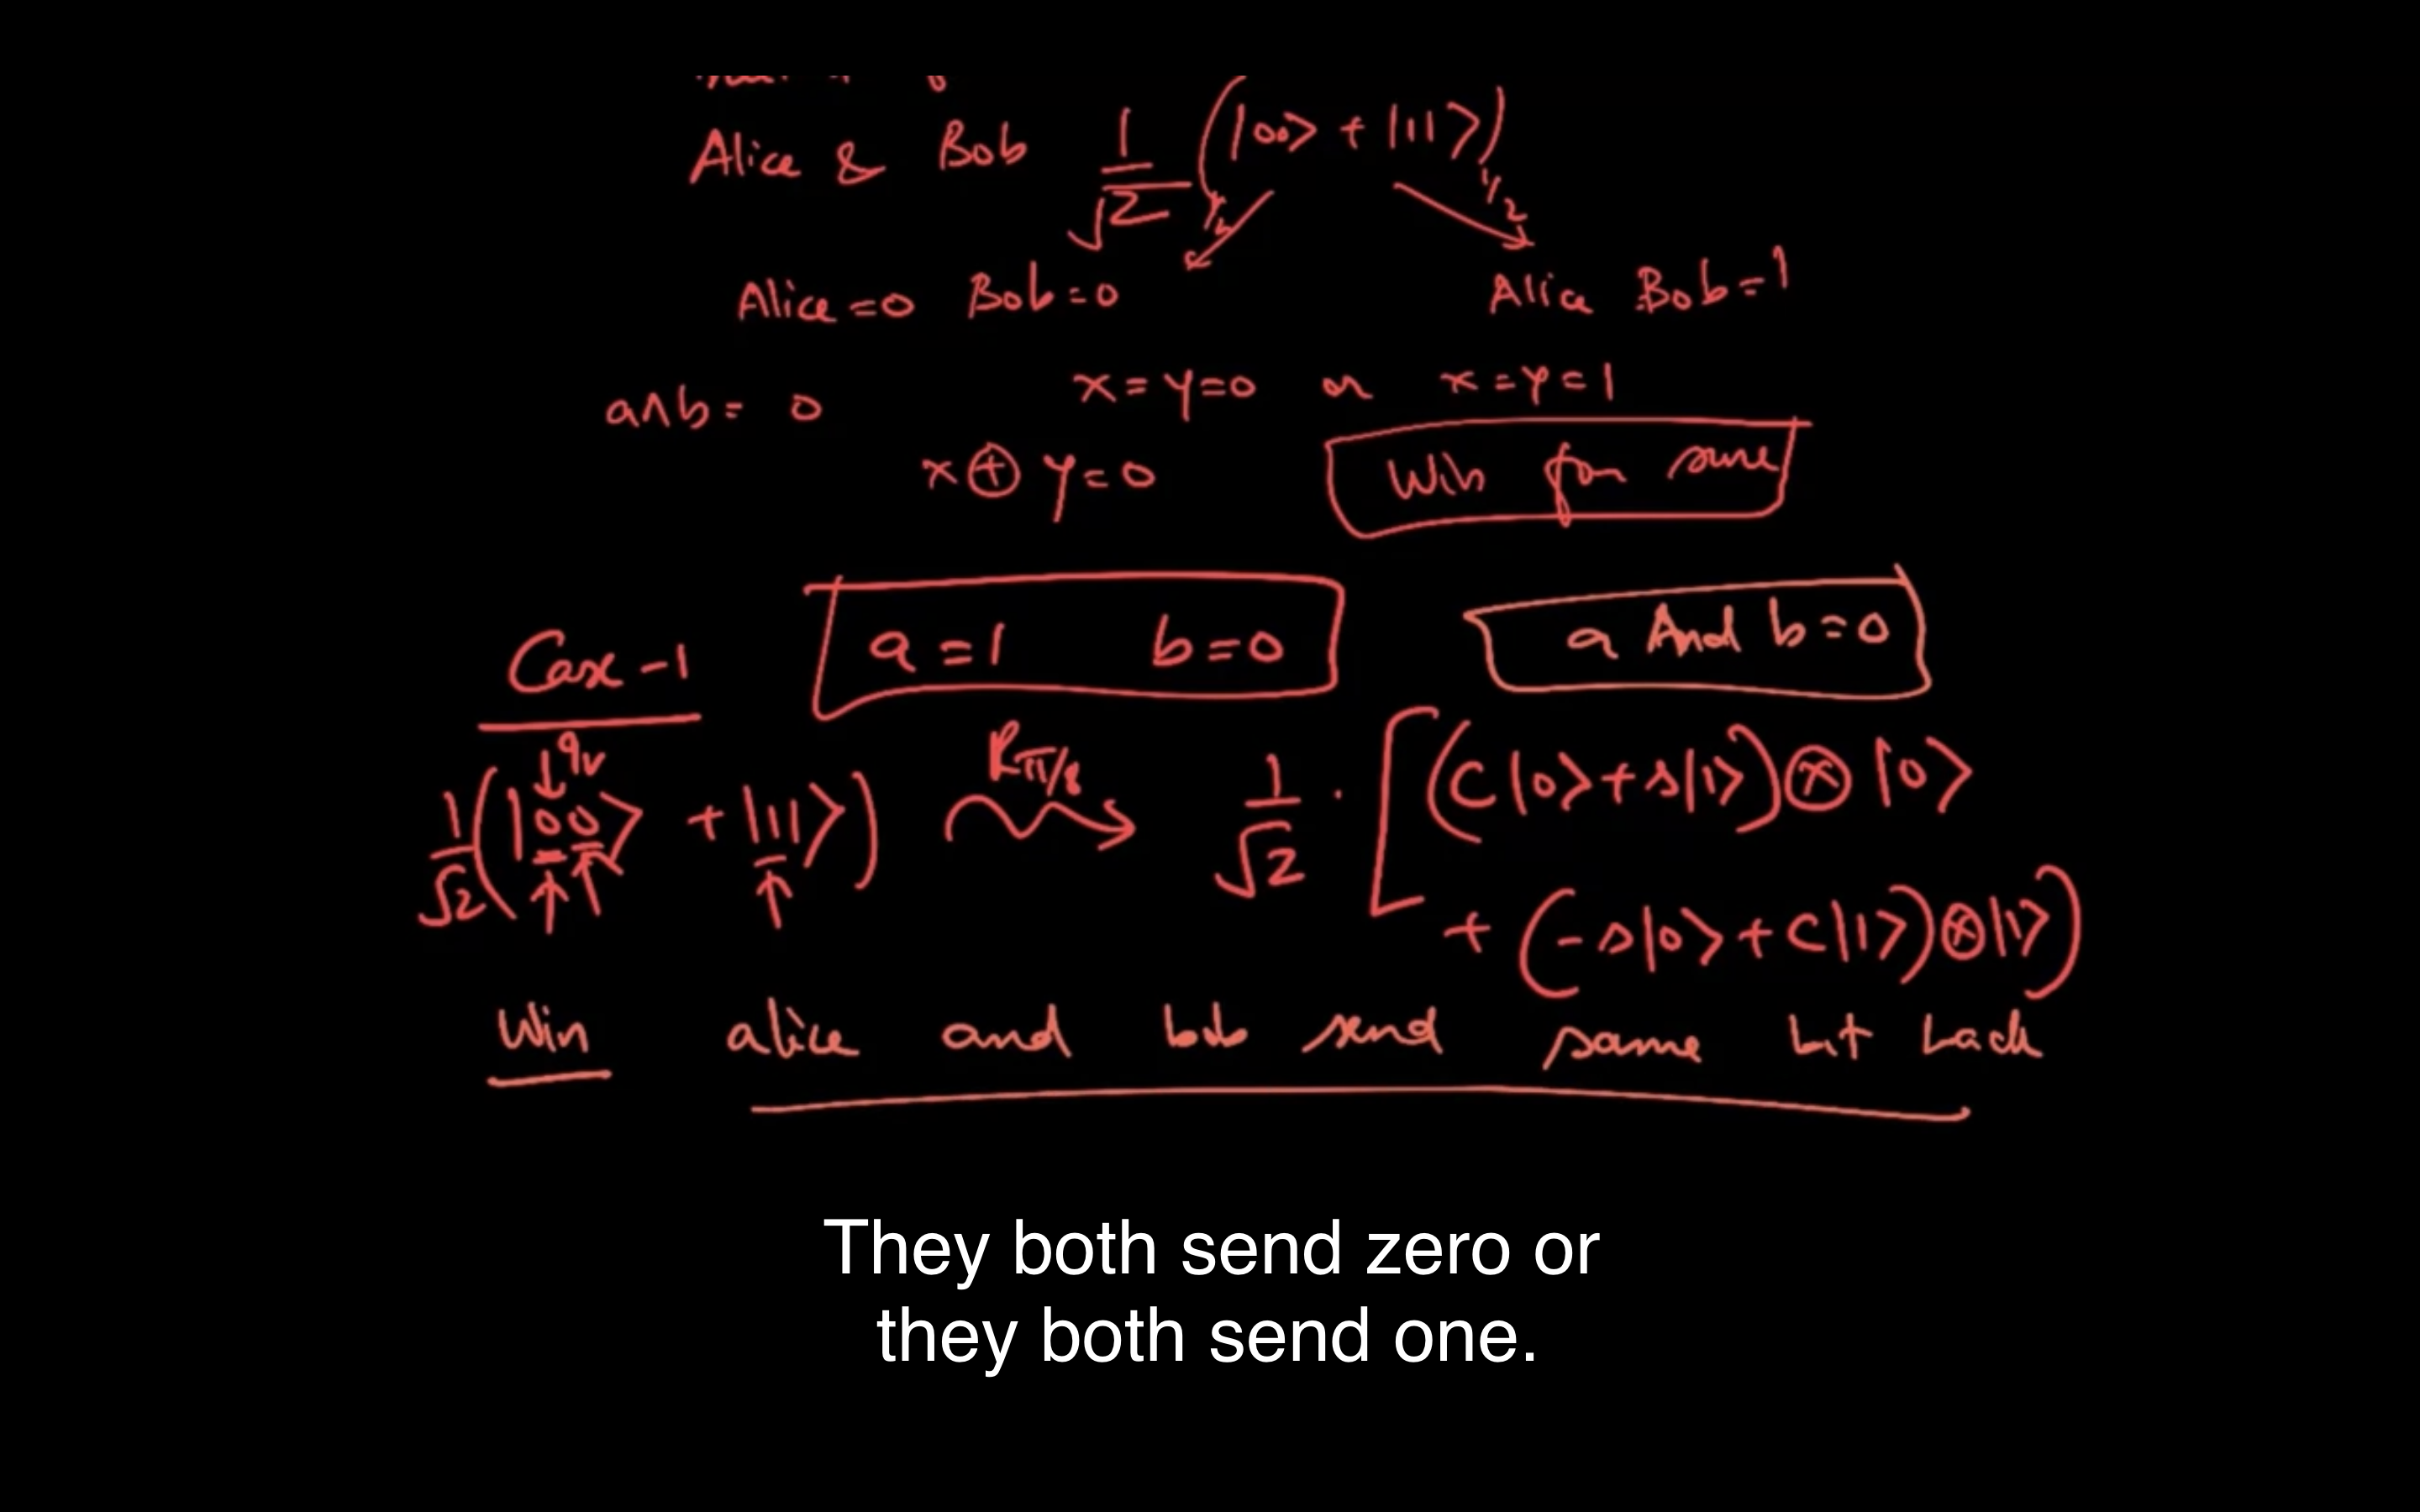 Alice & Bob 1/√2 (|00> + |11>)
1/2 1/2
Alice = 0 Bob = 0 Alice Bob = 1
a∧b = 0 x = y = 0 or x = y = 1
x ⊕ y = 0 Win for sure
Case - 1 a = 1 b = 0 a And b = 0
1/√2 (|00> + |11>) Rπ/8 1/√2 · [(c|0> + s|1>) ⊗ |0>
+ (-s|0> + c|1>) ⊗ |1>)
Win alice and bob send same bit back
They both send zero or
they both send one.